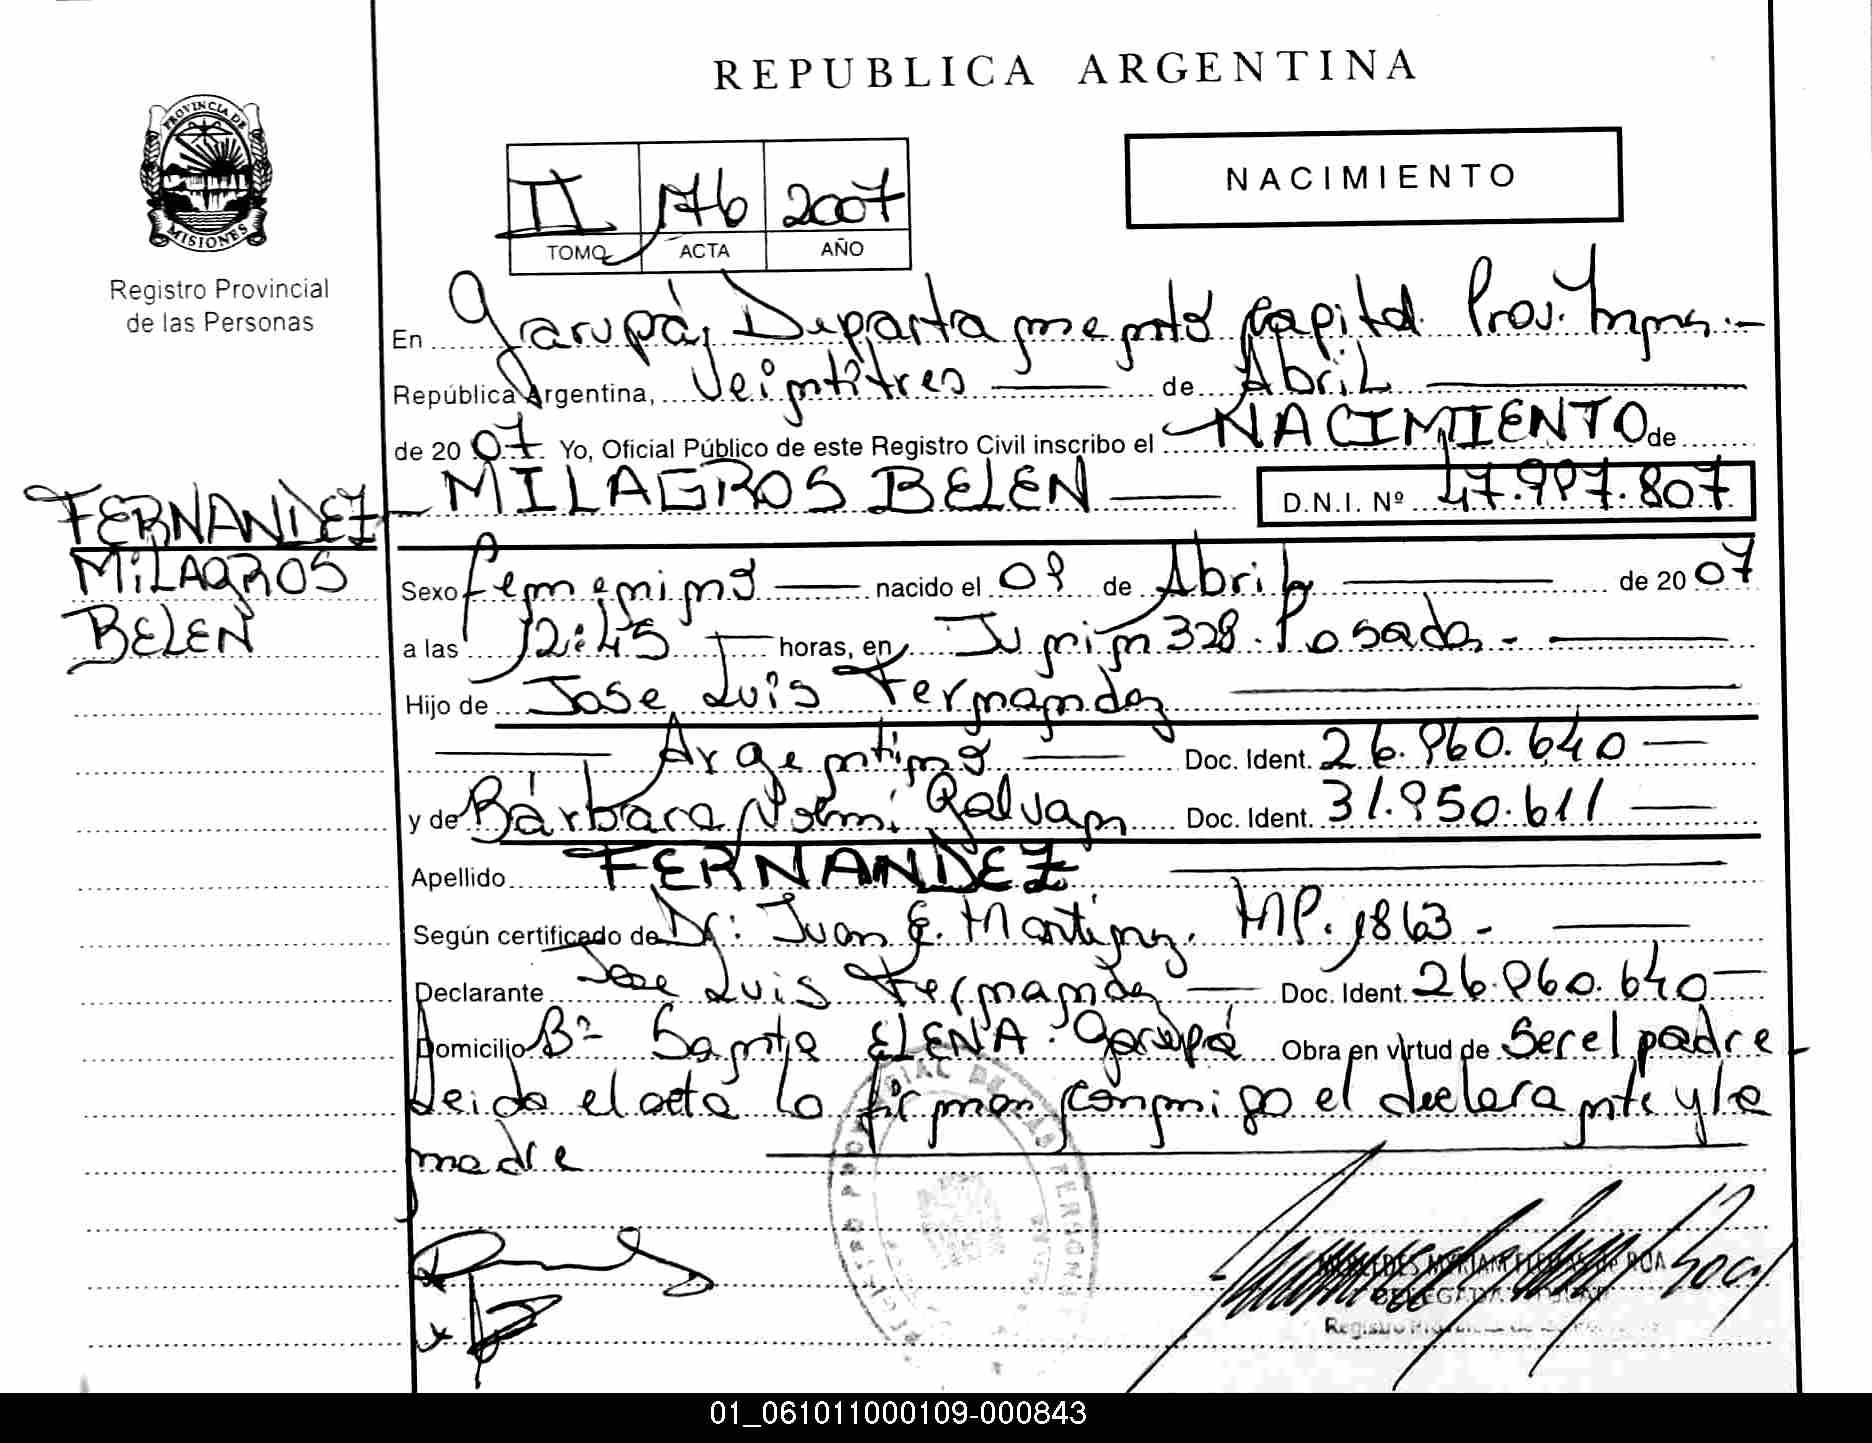 REPUBLICA ARGENTINA
PROVINCIA DE MISIONES
Registro Provincial
de las Personas
NACIMIENTO
II 176 2007
TOMO ACTA AÑO
En Garupá, Departamento Capital Prov. Mnes.-
República Argentina, Veintitres de Abril
de 2007 Yo, Oficial Público de este Registro Civil inscribo el NACIMIENTO de
MILAGROS BELEN D.N.I. Nº 47.997.807
FERNANDEZ
MILAGROS
BELEN
Sexo femenino nacido el 09 de Abril de 2007
a las 12:45 horas, en Junin 328. Posadas-
Hijo de Jose Luis Fernandez
Argentino Doc. Ident. 26.960.640
y de Bárbara Noemi Galvan Doc. Ident. 31.950.611
Apellido FERNANDEZ
Según certificado de Dr: Juan E. Martinez. MP. 1863-
Declarante Jose Luis Fernandez Doc. Ident. 26.960.640
Domicilio Bº Santa ELENA. Garupá Obra en virtud de Ser el padre
Leida el acta la firman conmigo el declarante y la
madre
MERCEDES MYRIAM DE ROA
DELEGADA TITULAR
01_061011000109-000843